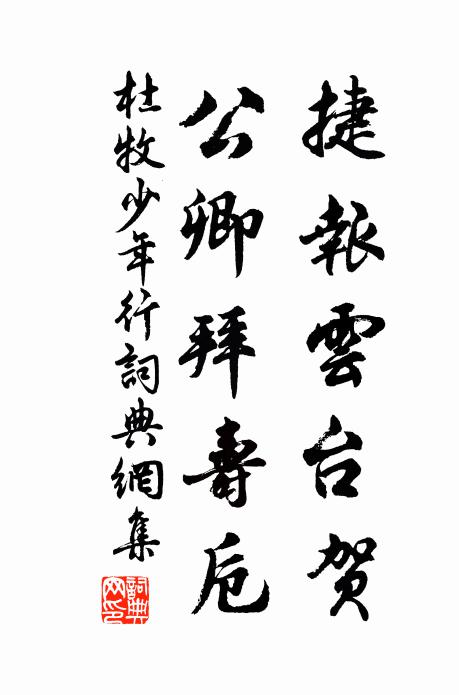 捷報雲台贺
公卿拜壽卮
杜牧少年行詞典網集
詞典网印